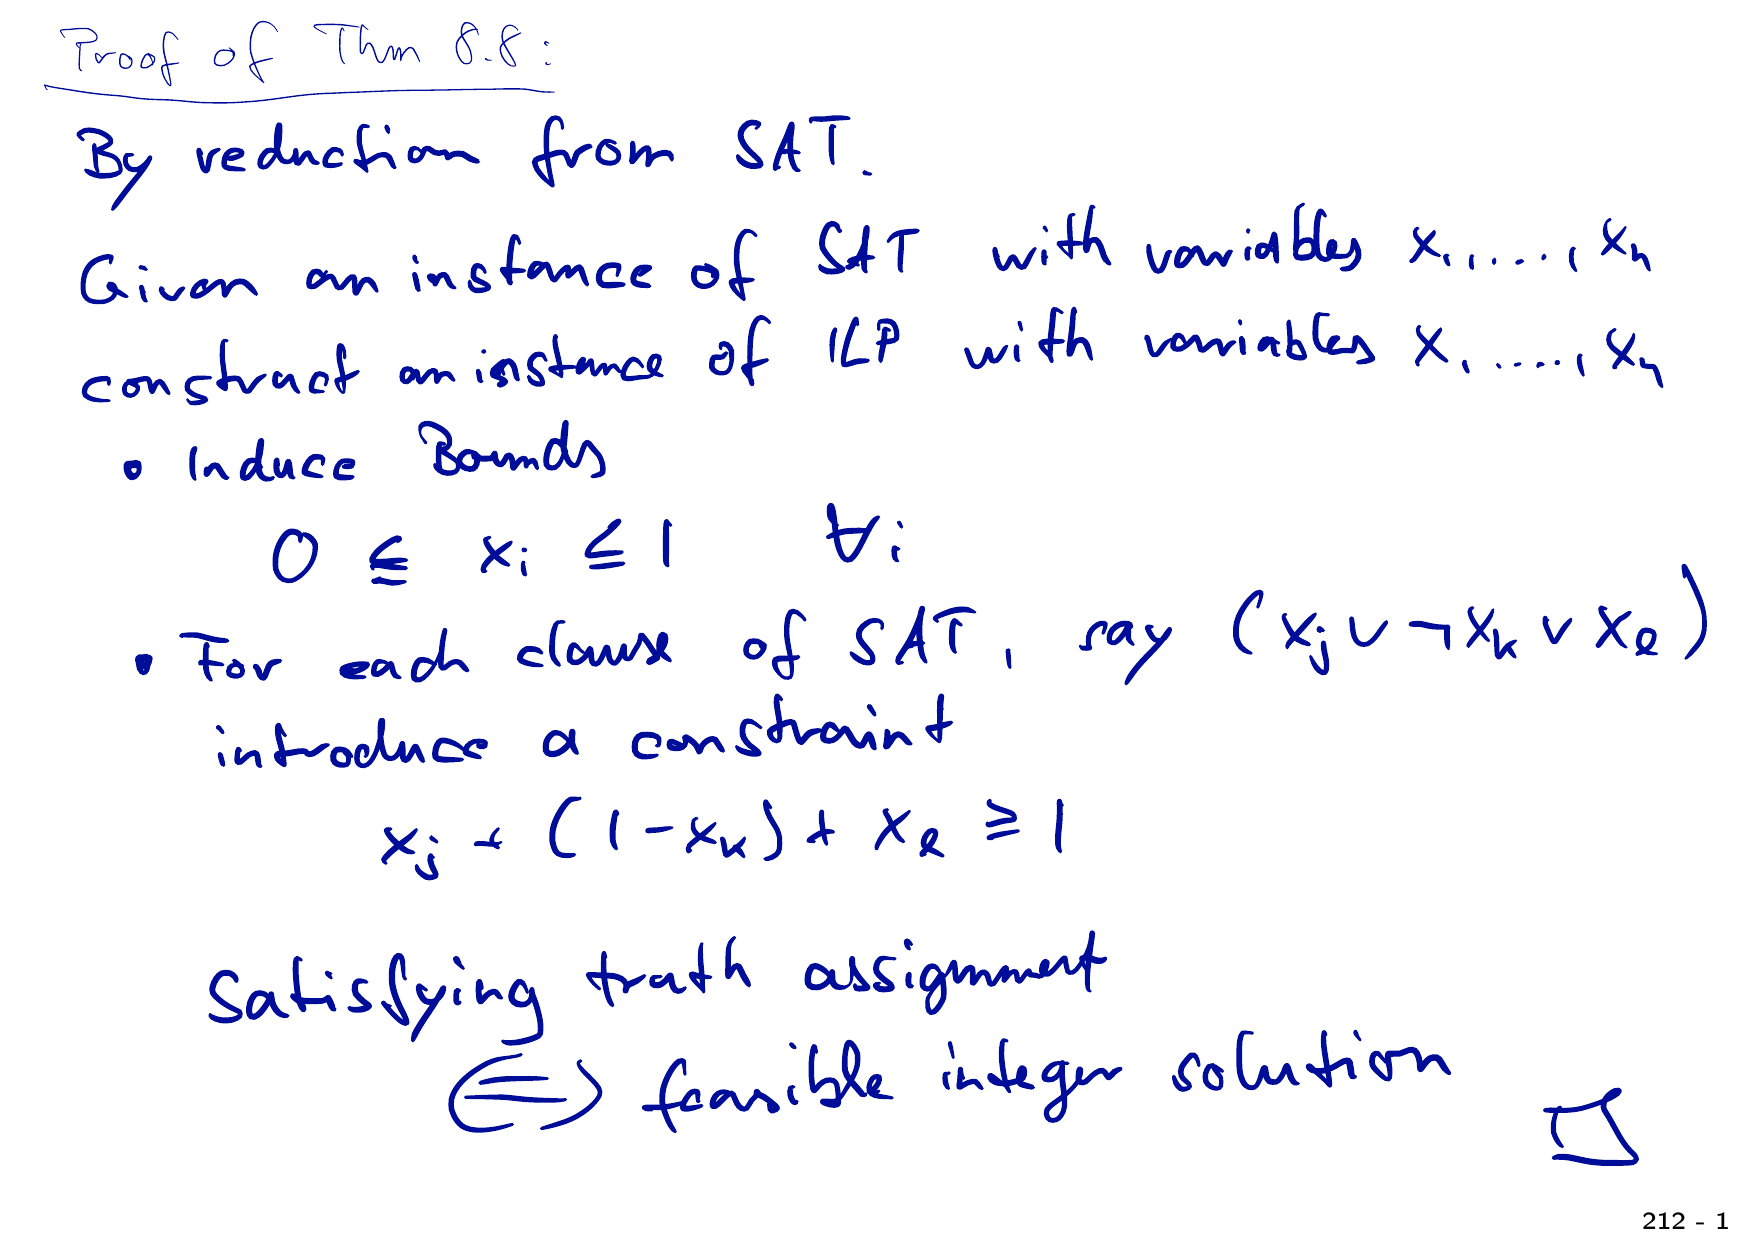 Proof of Thm 8.8:
By reduction from SAT.
Given an instance of SAT with variables x₁,....,xₙ
construct an instance of ILP with variables x₁,....,xₙ
• Induce Bounds
0 ≤ xᵢ ≤ 1 ∀i
• For each clause of SAT, say (xⱼ ∨ ¬xₖ ∨ xₗ)
introduce a constraint
xⱼ + (1-xₖ) + xₗ ≥ 1
Satisfying truth assignment
⟺ feasible integer solution
□
212 - 1